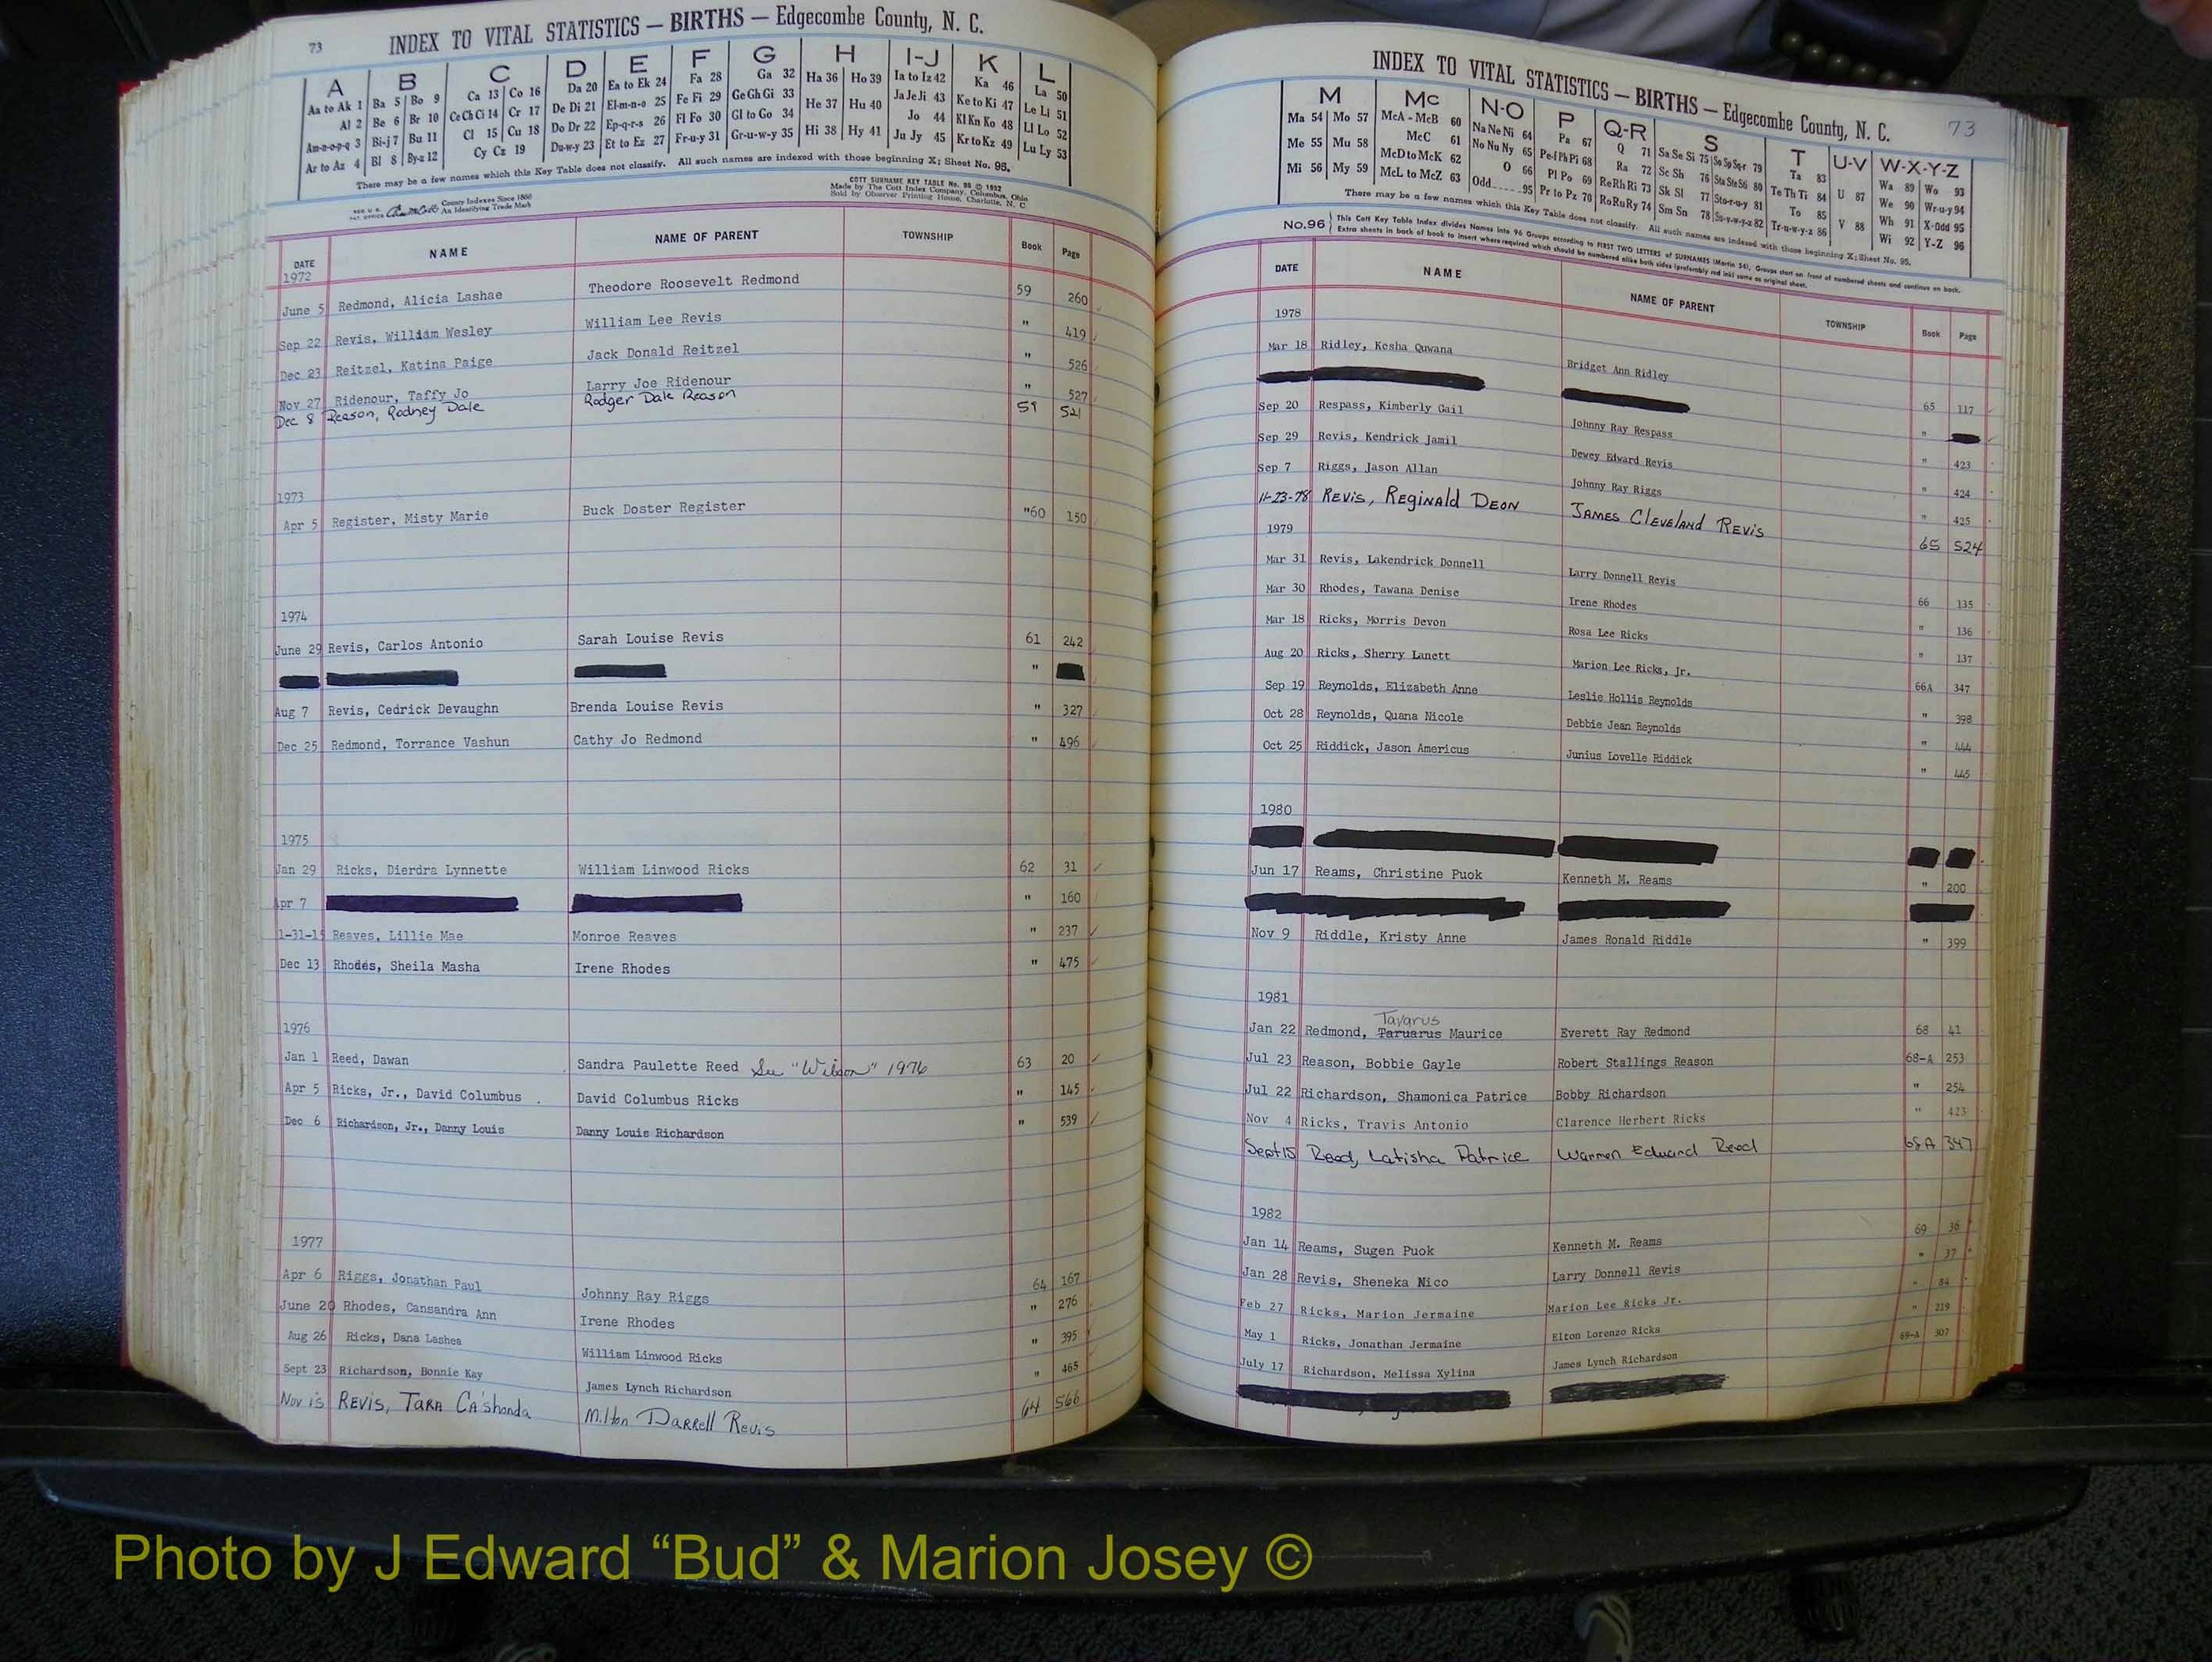 73 INDEX TO VITAL STATISTICS — BIRTHS — Edgecombe County, N. C.
A B C D E F G H I-J K L
Aa to Ak 1 Ba 5 Bo 9 Ca 13 Co 16 Da 20 Ea to Ek 24 Fa 28 Ga 32 Ha 36 Ho 39 Ia to Iz 42 Ka 46 La 50
Al 2 Be 6 Br 10 Ce Ch Ci 14 Cr 17 De Di 21 El-m-n-o 25 Fe Fi 29 Ge Gh Gi 33 He 37 Hu 40 Ja Je Ji 43 Ke to Ki 47 Le Li 51
Am-n-o-p-q 3 Bi-j 7 Bu 11 Cl 15 Cu 18 Do Dr 22 Ep-q-r-s 26 Fl Fo 30 Gl to Go 34 Hi 38 Hy 41 Jo 44 Kl Kn Ko 48 Ll Lo 52
Ar to Az 4 Bl 8 By-z 12 Cy Cz 19 Du-w-y 23 Et to Ez 27 Fr-u-y 31 Gr-u-w-y 35 Ju Jy 45 Kr to Kz 49 Lu Ly 53
There may be a few names which this Key Table does not classify. All such names are indexed with those beginning X; Sheet No. 95.
REG. U. S. PAT. OFFICE County Indexes Since 1888 An Identifying Trade Mark
COTT SURNAME KEY TABLE No. 96 © 1952
Made by The Cott Index Company, Columbus, Ohio
Sold by Observer Printing House, Charlotte, N. C.
DATE NAME NAME OF PARENT TOWNSHIP Book Page
1972
June 5 Redmond, Alicia Lashae Theodore Roosevelt Redmond 59 260
Sep 22 Revis, William Wesley William Lee Revis " 419
Dec 23 Reitzel, Katina Paige Jack Donald Reitzel " 526
Nov 27 Ridenour, Taffy Jo Larry Joe Ridenour " 527
Dec 8 Reason, Rodney Dale Rodger Dale Reason 59 521
1973
Apr 5 Register, Misty Marie Buck Doster Register "60 150
1974
June 29 Revis, Carlos Antonio Sarah Louise Revis 61 242
"
Aug 7 Revis, Cedrick Devaughn Brenda Louise Revis " 327
Dec 25 Redmond, Torrance Vashun Cathy Jo Redmond " 496
1975
Jan 29 Ricks, Dierdra Lynnette William Linwood Ricks 62 31
Apr 7 " 160
1-31-15 Reaves, Lillie Mae Monroe Reaves " 237
Dec 13 Rhodes, Sheila Masha Irene Rhodes " 475
1976
Jan 1 Reed, Dawan Sandra Paulette Reed See "Wilson" 1976 63 20
Apr 5 Ricks, Jr., David Columbus David Columbus Ricks " 145
Dec 6 Richardson, Jr., Danny Louis Danny Louis Richardson " 539
1977
Apr 6 Riggs, Jonathan Paul Johnny Ray Riggs 64 167
June 20 Rhodes, Cansandra Ann Irene Rhodes " 276
Aug 26 Ricks, Dana Lashea William Linwood Ricks " 395
Sept 23 Richardson, Bonnie Kay James Lynch Richardson " 465
Nov 15 REVIS, TARA CA'shonda Milton DARRELL REVIS 64 566
INDEX TO VITAL STATISTICS — BIRTHS — Edgecombe County, N. C. 73
M Mc N-O P Q-R S T U-V W-X-Y-Z
Ma 54 Mo 57 McA - McB 60 Na Ne Ni 64 Pa 67 Q 71 Sa Se Si 75 So Sp Sq-r 79 Ta 83 U 87 Wa 89 Wo 93
Me 55 Mu 58 McC 61 No Nu Ny 65 Pe-f Ph Pi 68 Ra 72 Sc Sh 76 Sta Ste Sti 80 Te Th Ti 84 V 88 We 90 Wr-u-y 94
Mi 56 My 59 McD to McK 62 O 66 Pl Po 69 Re Rh Ri 73 Sk Sl 77 Sto-r-u-y 81 To 85 Wh 91 X-Odd 95
McL to McZ 63 Odd 95 Pr to Pz 70 Ro Ru Ry 74 Sm Sn 78 Su-v-w-y-z 82 Tr-u-w-y-z 86 Wi 92 Y-Z 96
There may be a few names which this Key Table does not classify. All such names are indexed with those beginning X; Sheet No. 95.
No. 96 This Cott Key Table Index divides Names into 96 Groups according to FIRST TWO LETTERS of SURNAMES (Martin 54), Groups start on front of numbered sheets and continue on back.
Extra sheets in back of book to insert where required which should be numbered alike both sides (preferably red ink) same as original sheet.
DATE NAME NAME OF PARENT TOWNSHIP Book Page
1978
Mar 18 Ridley, Kesha Quwana Bridget Ann Ridley 65 117
"
Sep 20 Respass, Kimberly Gail Johnny Ray Respass " 423
Sep 29 Revis, Kendrick Jamil Dewey Edward Revis " 424
Sep 7 Riggs, Jason Allan Johnny Ray Riggs " 425
11-23-78 REVIS, REGINALD DEON JAMES CLEVELAND REVIS 65 524
1979
Mar 31 Revis, Lakendrick Donnell Larry Donnell Revis 66 135
Mar 30 Rhodes, Tawana Denise Irene Rhodes " 136
Mar 18 Ricks, Morris Devon Rosa Lee Ricks " 137
Aug 20 Ricks, Sherry Lanett Marion Lee Ricks, Jr. 66A 347
Sep 19 Reynolds, Elizabeth Anne Leslie Hollis Reynolds " 398
Oct 28 Reynolds, Quana Nicole Debbie Jean Reynolds " 444
Oct 25 Riddick, Jason Americus Junius Lovelle Riddick " 445
1980
Jun 17 Reams, Christine Puok Kenneth M. Reams " 200
Nov 9 Riddle, Kristy Anne James Ronald Riddle " 399
1981
Tavarus
Jan 22 Redmond, Taruarus Maurice Everett Ray Redmond 68 41
Jul 23 Reason, Bobbie Gayle Robert Stallings Reason 68-A 253
Jul 22 Richardson, Shamonica Patrice Bobby Richardson " 254
Nov 4 Ricks, Travis Antonio Clarence Herbert Ricks " 423
Sept 15 Reed, Latisha Patrice Warren Edward Reed 68A 347
1982
Jan 14 Reams, Sugen Puok Kenneth M. Reams 69 36
Jan 28 Revis, Sheneka Nico Larry Donnell Revis " 37
Feb 27 Ricks, Marion Jermaine Marion Lee Ricks Jr. " 84
May 1 Ricks, Jonathan Jermaine Elton Lorenzo Ricks " 219
July 17 Richardson, Melissa Xylina James Lynch Richardson 69-A 307
Photo by J Edward “Bud” & Marion Josey ©